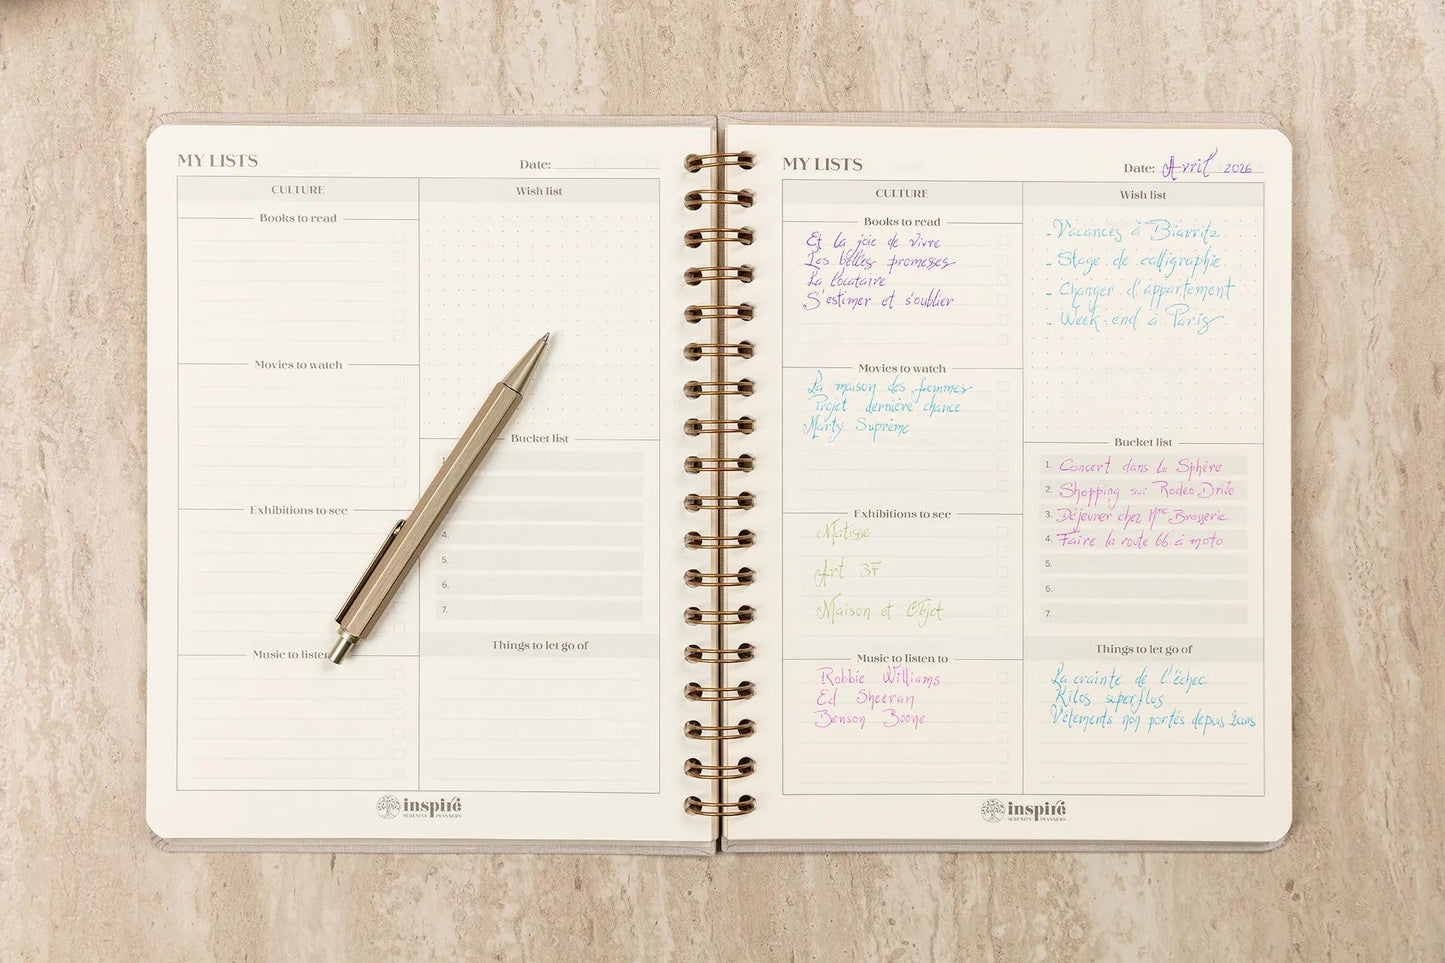 MY LISTS
Date:
CULTURE
Books to read
Movies to watch
Exhibitions to see
Music to listen
Wish list
Bucket list
1.
4.
5.
6.
7.
Things to let go of
inspire
SERENITY PLANNERS
MY LISTS
Date: Avril 2026
CULTURE
Books to read
Et la joie de vivre
Les belles promesses
La locataire
S'estimer et s'oublier
Movies to watch
La maison des femmes
Projet dernière chance
Marty Suprême
Exhibitions to see
Matisse
Art 3F
Maison et Objet
Music to listen to
Robbie Williams
Ed Sheeran
Benson Boone
Wish list
- Vacances à Biarritz
- Stage de calligraphie
- Changer d'appartement
- Week-end à Paris
Bucket list
1. Concert dans la Sphère
2. Shopping sur Rodeo Drive
3. Déjeuner chez Mme Brasserie
4. Faire la route 66 à moto
5.
6.
7.
Things to let go of
La crainte de l'échec
Kilos superflus
Vêtements non portés depuis 2ans
inspire
SERENITY PLANNERS